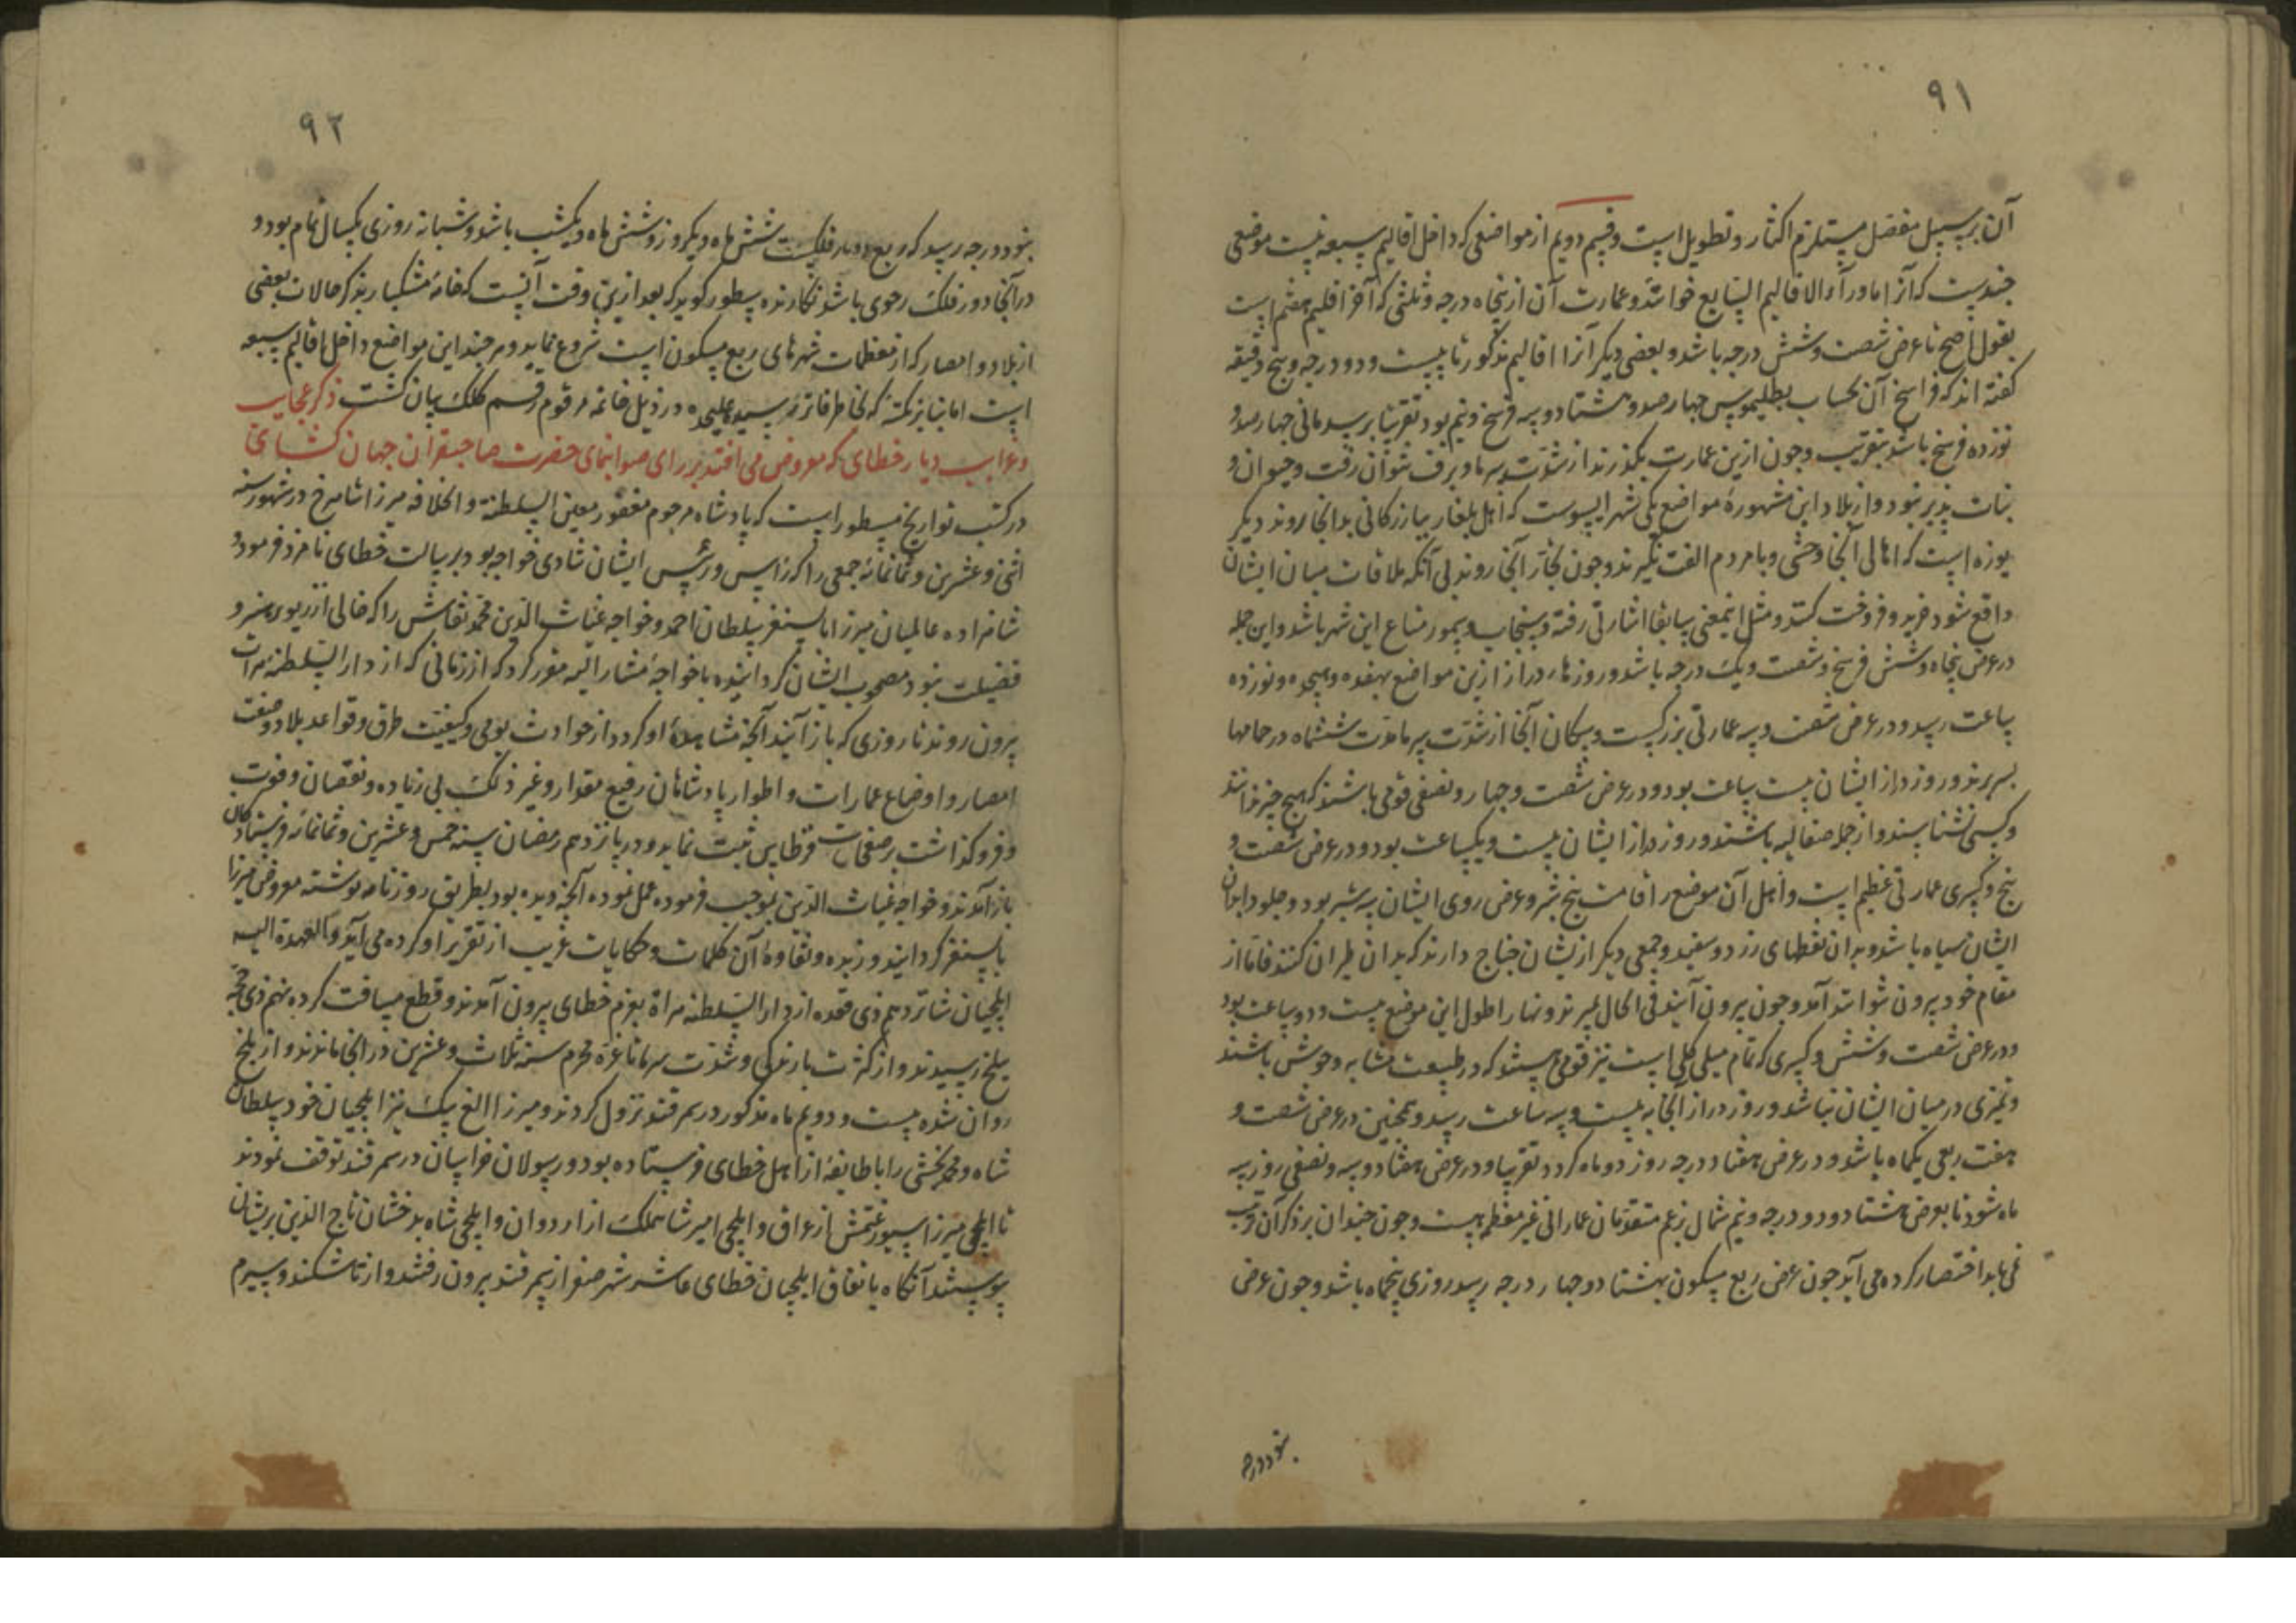 ۹۱
آن بر سبیل مفصل مستلزم اکثار و تطویل است و قسم دویم از مواضعی که داخل اقالیم سبعه نیست موضعی
چندیست که آنرا ماورآء الاقالیم السابع خوانند و عمارت آن از پنجاه درجه و ثلثی که آخر اقلیم هفتم است
بقول اصح تا عرض شصت و شش درجه باشد و بعضی دیگر آنرا اقالیم مذکور تا بیست و دو درجه و پنج دقیقه
گفته‌اند که فراسخ آن بحساب بطلیموس چهار صد و هشتاد و سه فرسخ و نیم بود تقریبا بر سد مانی چهارصد و
نوزده فرسخ باشد بتقریب و چون ازین عمارت بگذرند از شدت سرما و برف نتوان رفت و حیوان و
نبات پذیر نبود و از بلاد این مشهوره مواضع یکی شهر ایسوست که اهل بلغار ببازرکانی بدانجا روند دیگر
یوزه است که اهالی آنجا وحشی و با مردم الفت نگیرند و چون تجار آنجا روند بی آنکه ملاقات میان ایشان
واقع شود خرید و فروخت کنند و مثل اینمعنی سابقا اشارتی رفته و سنجاب و سمور متاع این شهر باشد و این جمله
در عرض پنجاه و شش فرسخ و شصت و یک درجه باشد و روزهاء دراز ازین مواضع بهفده و هیجده و نوزده
ساعت رسد و در عرض شصت و سه عمارتی بزرگست و سکان آنجا از شدت سرما مدت ششماه در حمامها
بسر برند و روز دراز ایشان بیست ساعت بود و در عرض شصت و چهار و نصفی قومی باشند که هیچ چیز ندانند
و کسی نشناسند و از جمله صقالبه باشند و روز دراز ایشان بیست و یکساعت بود و در عرض شصت و
پنج و کسری عمارتی عظیم است و اهل آن موضع را قامت پنج شبر و عرض روی ایشان سه شبر بود و جلود ابدان
ایشان سیاه باشد و بدان نقطهای زرد و سفید و جمعی دیگر از یشان جناح دارند که بدان طیران کنند فاما از
مقام خود بیرون نتوانند آمد و چون بیرون آیند فی الحال بمیرند و نهار اطول این موضع بیست و دو ساعت بود
و در عرض شصت و شش و کسری که تمام میلی کلی است نیز قومی هستند که در طبیعت مشابه وحوش باشند
و تمیزی در میان ایشان نباشد و روز دراز آنجا به بیست و سه ساعت رسد و همچنین در عرض شصت و
هفت ربعی یکماه باشد و در عرض هفتاد درجه روز دو ماه کردد تقریبا و در عرض هفتاد و سه و نصفی روز سه
ماه شود تا بعرض هشتاد و دو درجه و نیم شمال بزعم متقدمان عمارانی غیر معظم هست و چون چندان بر ذکر آن مترتب
نمی‌باید اختصار کرده می آید چون عرض ربع مسکون بهشتاد و چهار درجه رسد روزی پنجماه باشد و چون عرض
بنود درجه
۹۲
بنود درجه رسد که ربع دور فلکیست شش ماه دیگر روز و شش ماه دیگر شب باشد و شبانه روزی یکسال تمام بود و
در آنجا دور فلک رحوی باشد نکارنده سطور کوید که بعد ازین وقت آنست که خامهٔ مشکبار بذکر حالات بعضی
از بلاد و امصار که از معظمات شهرهای ربع مسکون است شروع نماید و هر چند این مواضع داخل اقالیم سبعه
است اما بنا بر نکته که بخاطر فاتر رسیده علیحده در ذیل خاتمه مرقوم رقسم کلک بیان کشت ذکر عجایب
و غرایب دیار خطای که معروض می افتد بر رای صوابنمای حضرت صاحبقران جهان کشای
در کتب تواریخ مسطور است که پادشاه مرحوم مغفور معین السلطنة و الخلافه میرزا شاهرخ در شهور سنه
اثنی و عشرین و ثمانمائه جمعی را که رأیس و رئیس ایشان شادی خواجه بود برسالت خطای نامزد فرمود و
شاهزاده عالمیان میرزا بایسنغر سلطان احمد و خواجه غیاث الدین محمد نقاش را که خالی از زیور هنر و
فضیلت نبود مصحوب ایشان کردانیده با خواجهٔ مشار الیه مقرر کرد که از زمانی که از دار السلطنهٔ هرات
بیرون روند تا روزی که باز آیند آنچه مشاهدهٔ او کردد از حوادث یومی و کیفیت طرق و قواعد بلاد و صفت
امصار و اوضاع عمارات و اطوار پادشاهان رفیع مقدار و غیر ذلک بی زیاده و نقصان و فوت
و فروکذاشت بر صفحات قرطاس ثبت نماید و در پانزدهم رمضان سنه خمس و عشرین و ثمانمائه فرستادکان
باز آمدند و خواجه غیاث الدین بموجب فرموده عمل نموده آنچه دیده بود بطریق روزنامه نوشته معروض میرزا
بایسنغر کردانید و زبده و نقاوهٔ آن کلمات و حکایات غریب از تقریر او کرده می آید و العهدة الیه
ایلچیان شانزدهم ذی قعده از دار السلطنه هراة بعزم خطای بیرون آمدند و قطع مسافت کرده نهم ذی حجه
ببلخ رسیدند و از کثرت بارندکی و شدت سرما تا غرهٔ محرم سنه ثلاث و عشرین در آنجا ماندند و از بلخ
روان شده بیست و دویم ماه مذکور در سمرقند نزول کردند و میرزا الغ بیک نیز ایلچیان خود سلطان
شاه و محمد بخشی را با طایفهٔ از اهل خطای فرستاده بود و رسولان خراسان در سمرقند توقف نمودند
تا ایلچی میرزا سیورغتمش از عراق و ایلچی امیر شاهملک از اردوان و ایلچی شاه بدخشان تاج الدین بریشان
پوستند آنکاه باتفاق ایلچیان خطای عاشر شهر صفر از سمرقند بیرون رفتند و از تاشکند و سیرم